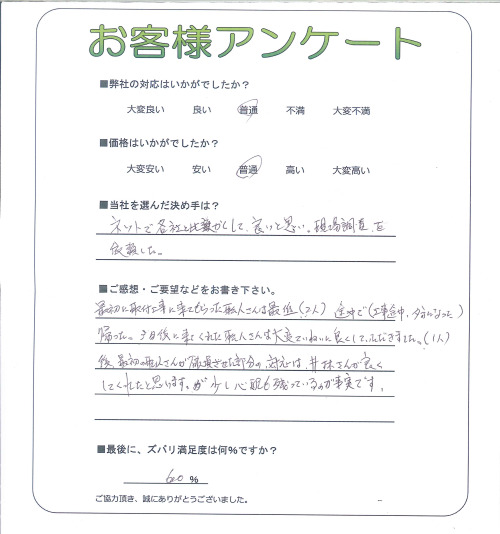 お客様アンケート
■弊社の対応はいかがでしたか？
大変良い 良い 普通 不満 大変不満
■価格はいかがでしたか？
大変安い 安い 普通 高い 大変高い
■当社を選んだ決め手は？
ネットで各社と比較して、良いと思い。現場調査、
依頼した。
■ご感想・ご要望などをお書き下さい。
最初に取付工事に来てもらった職人さんは最低（2人）途中で（工事途中、夕方になった）
帰った。3日後に来てくれた職人さんは大変ていねいに良くしていただきました。（1人）
後、最初の職人さんが破損させた部分の対応は、井林さんが良く
してくれたと思います。が少し心配も残っているのが事実です。
■最後に、ズバリ満足度は何％ですか？
60 %
ご協力頂き、誠にありがとうございました。